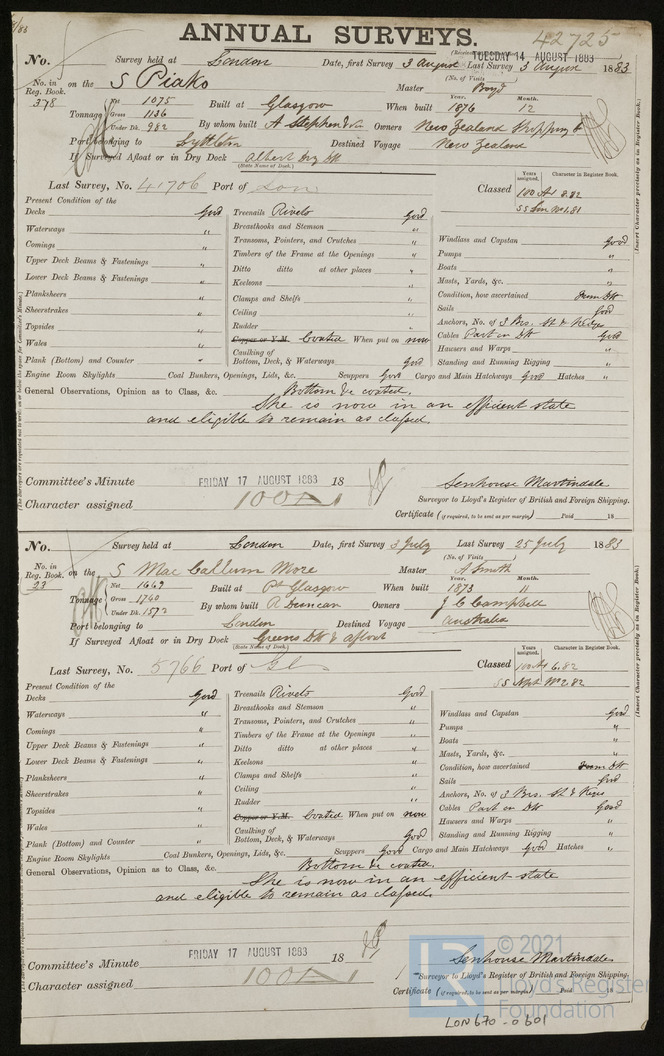 ANNUAL SURVEYS.
42725
TUESDAY 14 AUGUST 1883
No. Survey held at London Date, first Survey 3 August Last Survey 3 August 1883
No. in Reg. Book. 378 on the S Piako Master Boyd
(No. of Visits)
Tonnage Net 1075 Built at Glasgow When built Year. 1876 Month. 12
Gross 1136
Under Dk. 982 By whom built A Stephen & Owners New Zealand Shipping
Port belonging to Lyttelton Destined Voyage New Zealand
If Surveyed Afloat or in Dry Dock Albert Dry Dk
(State Name of Dock.)
Last Survey, No. 41706 Port of Lon Classed Years assigned. Character in Register Book.
100 A1 8.82
SS Lon No 1.81
(Insert Character precisely as in Register Book.)
Present Condition of the
Decks Good Treenails Rivets Good
Waterways " Breasthooks and Stemson "
Comings " Transoms, Pointers, and Crutches " Windlass and Capstan Good
Upper Deck Beams & Fastenings " Timbers of the Frame at the Openings " Pumps "
Lower Deck Beams & Fastenings " Ditto ditto at other places " Boats "
Keelsons " Masts, Yards, &c. "
Planksheers " Clamps and Shelfs " Condition, how ascertained from Dk
Sheerstrakes " Ceiling " Sails Good
Topsides " Rudder " Anchors, No. of 3 Brs. St & Kedges
Wales " Copper or Y.M. Coated When put on now Cables Part on Dk Good
Plank (Bottom) and Counter " Caulking of Bottom, Deck, & Waterways Good Hawsers and Warps "
Standing and Running Rigging "
Engine Room Skylights Coal Bunkers, Openings, Lids, &c. Scuppers Good Cargo and Main Hatchways Good Hatches "
General Observations, Opinion as to Class, &c. Bottom &c coated.
She is now in an efficient state
and eligible to remain as classed.
Committee's Minute FRIDAY 17 AUGUST 1883 18
Character assigned 100A1
Senhouse Martindale
Surveyor to Lloyd's Register of British and Foreign Shipping.
Certificate (if required, to be sent as per margin) Paid 18
No. Survey held at London Date, first Survey 3 July Last Survey 25 July 1883
No. in Reg. Book. 23 on the S Mac Callum More Master A Smith
(No. of Visits)
Tonnage Net 1669 Built at Pt Glasgow When built 1873 "
Gross 1740
Under Dk. 1573 By whom built R Duncan Owners J C Campbell
Port belonging to London Destined Voyage Australia
If Surveyed Afloat or in Dry Dock Greens Dk & afloat
(State Name of Dock.)
Last Survey, No. 5766 Port of Gls Classed Years assigned. Character in Register Book.
100 A1 6.82
SS Npt No 2.82
(Insert Character precisely as in Register Book.)
Present Condition of the
Decks Good Treenails Rivets Good
Waterways " Breasthooks and Stemson "
Comings " Transoms, Pointers, and Crutches " Windlass and Capstan Good
Upper Deck Beams & Fastenings " Timbers of the Frame at the Openings " Pumps "
Lower Deck Beams & Fastenings " Ditto ditto at other places " Boats "
Keelsons " Masts, Yards, &c. "
Planksheers " Clamps and Shelfs " Condition, how ascertained from Dk
Sheerstrakes " Ceiling " Sails Good
Topsides " Rudder " Anchors, No. of 3 Brs. St & Kedges
Wales " Copper or Y.M. Coated When put on now Cables Part on Dk Good
Plank (Bottom) and Counter " Caulking of Bottom, Deck, & Waterways Good Hawsers and Warps "
Standing and Running Rigging "
Engine Room Skylights Coal Bunkers, Openings, Lids, &c. Scuppers Good Cargo and Main Hatchways Good Hatches "
General Observations, Opinion as to Class, &c. Bottom &c coated.
She is now in an efficient state
and eligible to remain as classed.
Committee's Minute FRIDAY 17 AUGUST 1883 18
Character assigned 100A1
Senhouse Martindale
Surveyor to Lloyd's Register of British and Foreign Shipping.
Certificate (if required, to be sent as per margin) Paid 18
© 2021
Lloyd's Register
Foundation
LR
LON670-0601